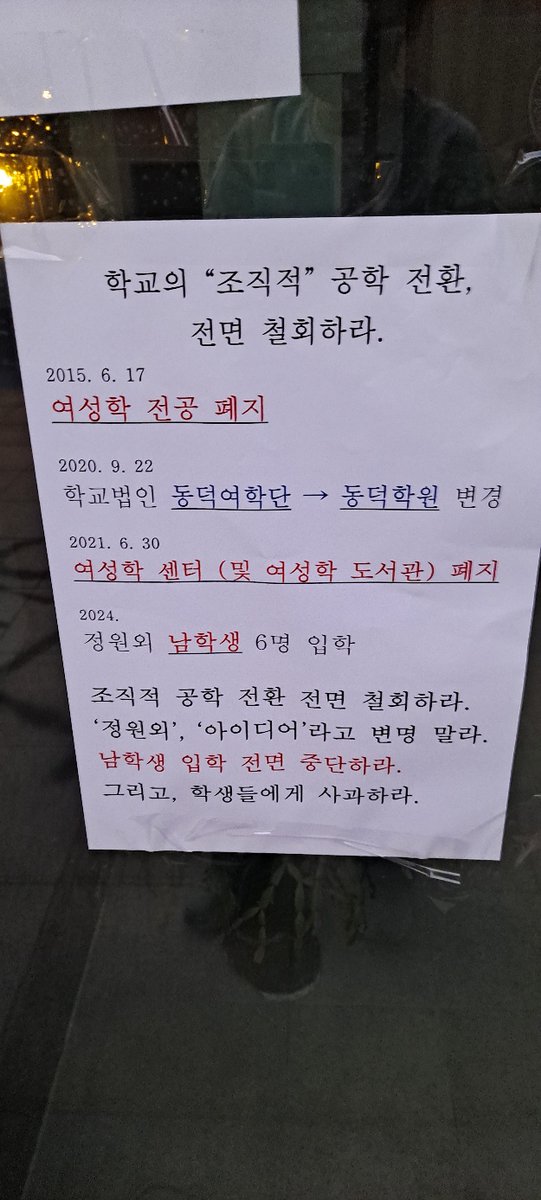 학교의 “조직적” 공학 전환,
전면 철회하라.
2015. 6. 17
여성학 전공 폐지
2020. 9. 22
학교법인 동덕여학단 → 동덕학원 변경
2021. 6. 30
여성학 센터 (및 여성학 도서관) 폐지
2024.
정원외 남학생 6명 입학
조직적 공학 전환 전면 철회하라.
‘정원외’, ‘아이디어’라고 변명 말라.
남학생 입학 전면 중단하라.
그리고, 학생들에게 사과하라.